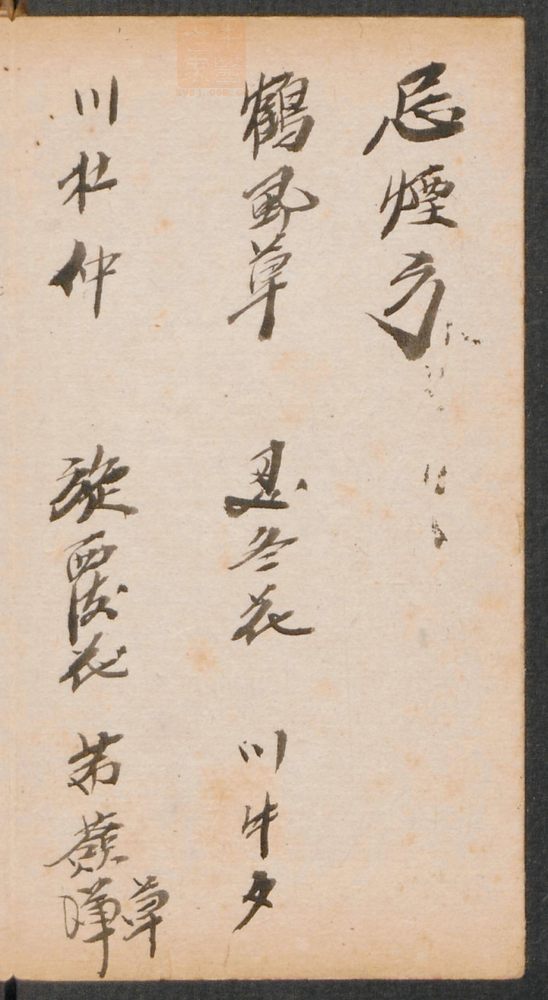 忌煙方
鶴虱草 忍冬花 川牛夕
川杜仲 旋覆花